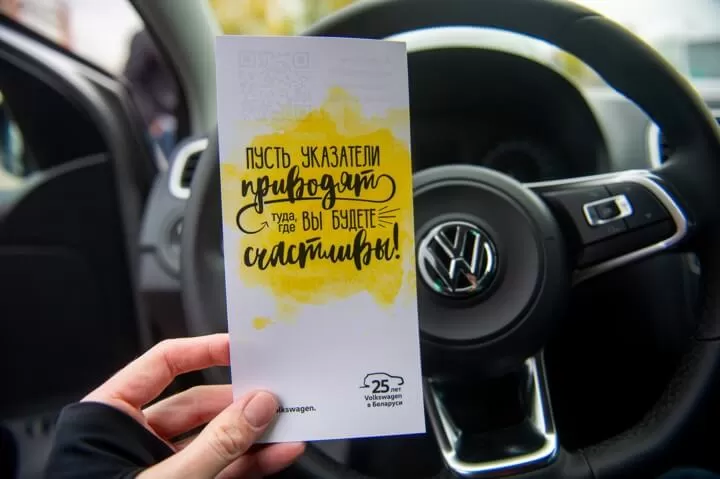 ПУСТЬ УКАЗАТЕЛИ
приводят
туда, где ВЫ БУДЕТЕ
счастливы!
25 лет
Volkswagen
в Беларуси
lkswagen.